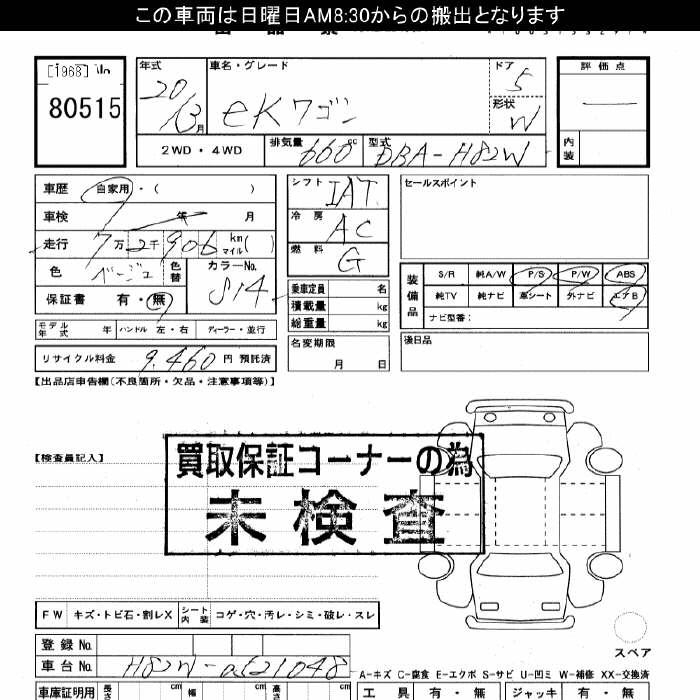 この車両は日曜日AM8:30からの搬出となります
[1968]
80515
年式
20
13月
車名・グレード
eKワゴン
ドア
5
形状
W
評価点
内装
2WD・4WD
排気量
660cc
型式
DBA-H82W
車歴 自家用・( )
車検 年 月
走行 7万2千906 km マイル( )
色 ベージュ 色替 カラーNo. S14
保証書 有・無
モデル年式 年 ハンドル 左・右 ディーラー・並行
リサイクル料金 9,460円 預託済
シフト IAT
冷房 AC
燃料 G
乗車定員 名
積載量 kg
総重量 kg
名変期限
月 日
セールスポイント
装備品
S/R 純A/W P/S P/W ABS
純TV 純ナビ 革シート 外ナビ エアB
ナビ型番:
後日品
【出品店申告欄(不良箇所・欠品・注意事項等)】
【検査員記入】
買取保証コーナーの為
未検査
FW キズ・トビ石・割レX シート内装 コゲ・穴・汚レ・シミ・破レ・スレ
スペア
登録No.
車台No. H82W-
A-キズ C-腐食 E-エクボ S-サビ U-凹ミ W-補修 XX-交換済
車庫証明用 長さ cm 幅 cm 高さ cm
工具 有・無 ジャッキ 有・無